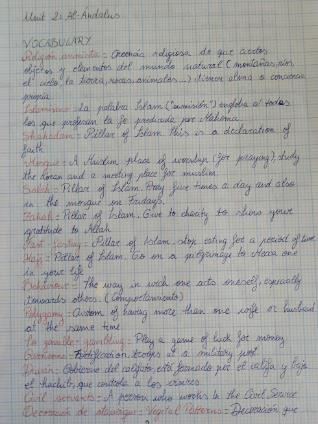 Unit 2: Al-Andalus
VOCABULARY
Religión animista = Creencia religiosa de que ciertos
objetos y elementos del mundo natural (montañas, ríos
el cielo, la tierra, rocas, animales...) tienen alma o conciencia
propia
Islamismo = La palabra Islam ("sumisión") engloba a todos
los que profesan la fe predicada por Mahoma.
Shahadah = Pillar of Islam. This is a declaration of
faith
Mosque = A Muslim place of worship (for praying), study
the Koran and a meeting place for muslim.
Salah = Pillar of Islam. Pray five times a day and also
in the mosque on Fridays.
Zakah = Pillar of Islam. Give to charity to show your
gratitude to Allah
Fast fasting = Pillar of Islam, stop eating for a period of time
Hajj = Pillar of Islam. Go on a pilgrimage to Mecca one
in your life
Behaviour = The way in wich one acts oneself, especially
towards others. (Comportamiento)
Polygamy = Custom of having more than one wife or husband
at the same time
To gamble - gambling = Play a game of luck for money
Garrisons = Fortification, troops at a military post.
Diwan = Gobierno del califato, está formado por el califa y bajo
el hachib, que controla a los visires
Civil servants = A person who works in the Civil Service
Decoración de ataurique = Vegetal Patterns = Decoración que